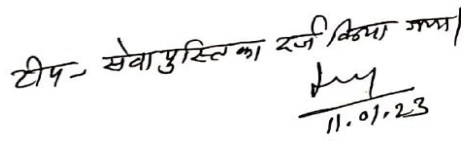 टीप- सेवा पुस्तिका दर्ज किया गया।
11.01.23